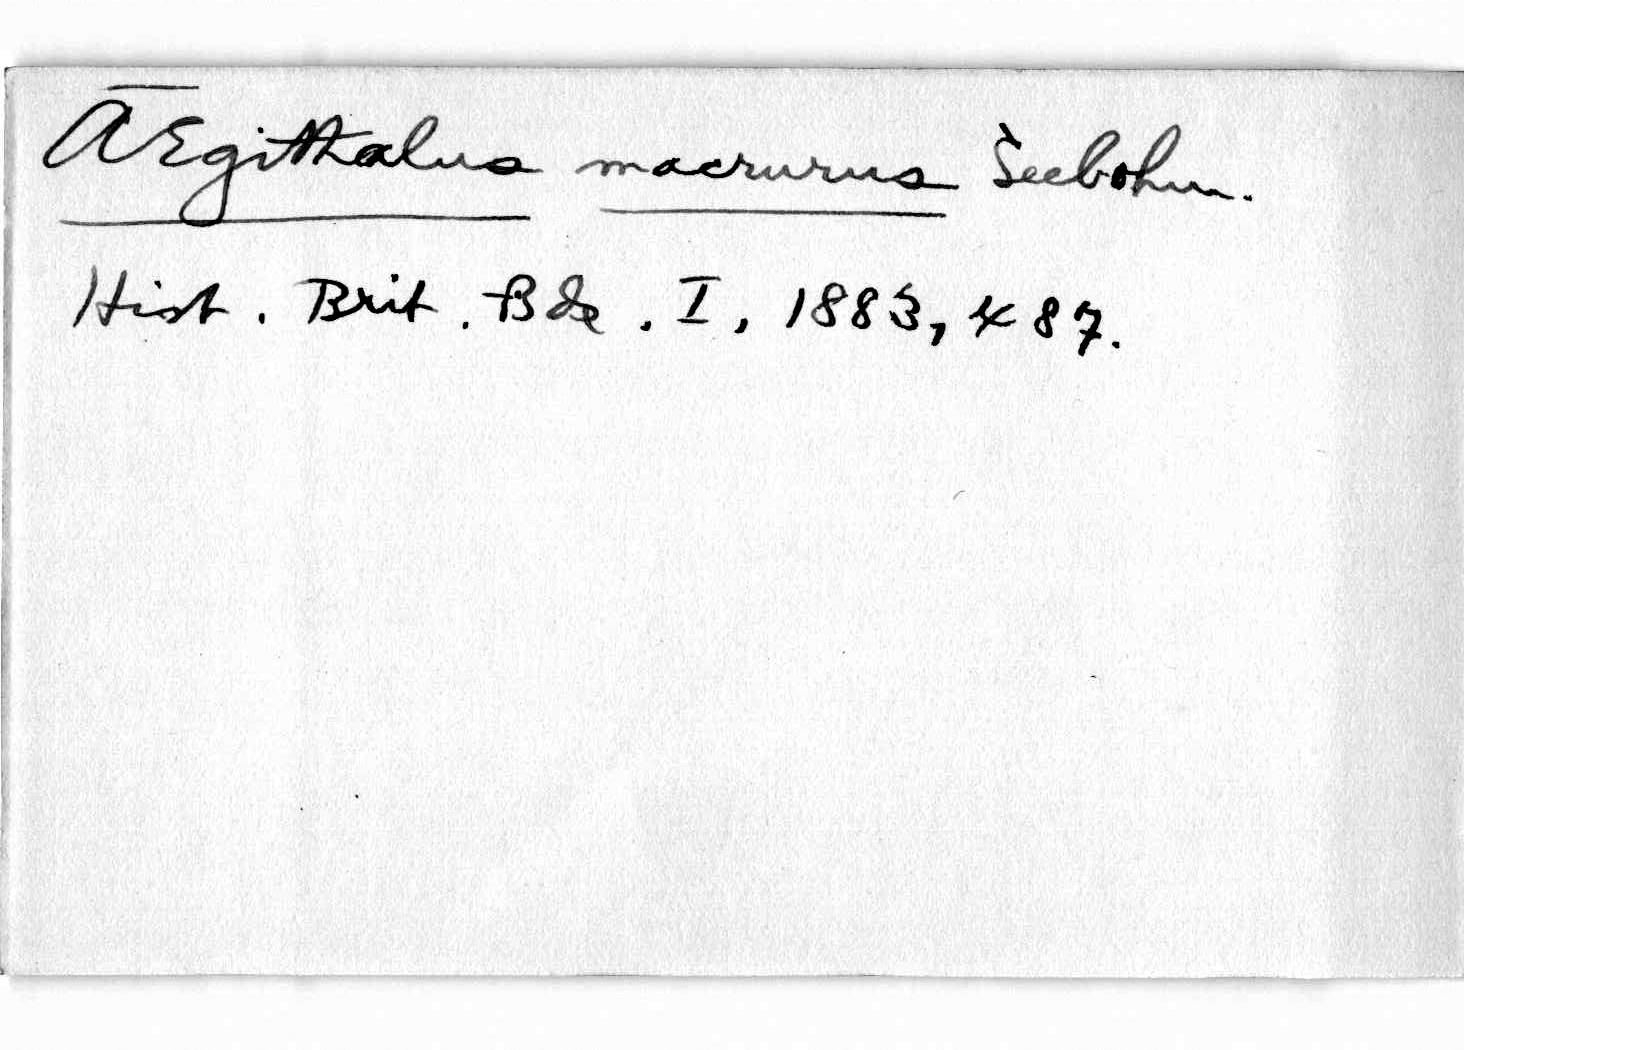 AEgithalus macrurus Seebohm.
Hist. Brit. Bds. I, 1883, 487.